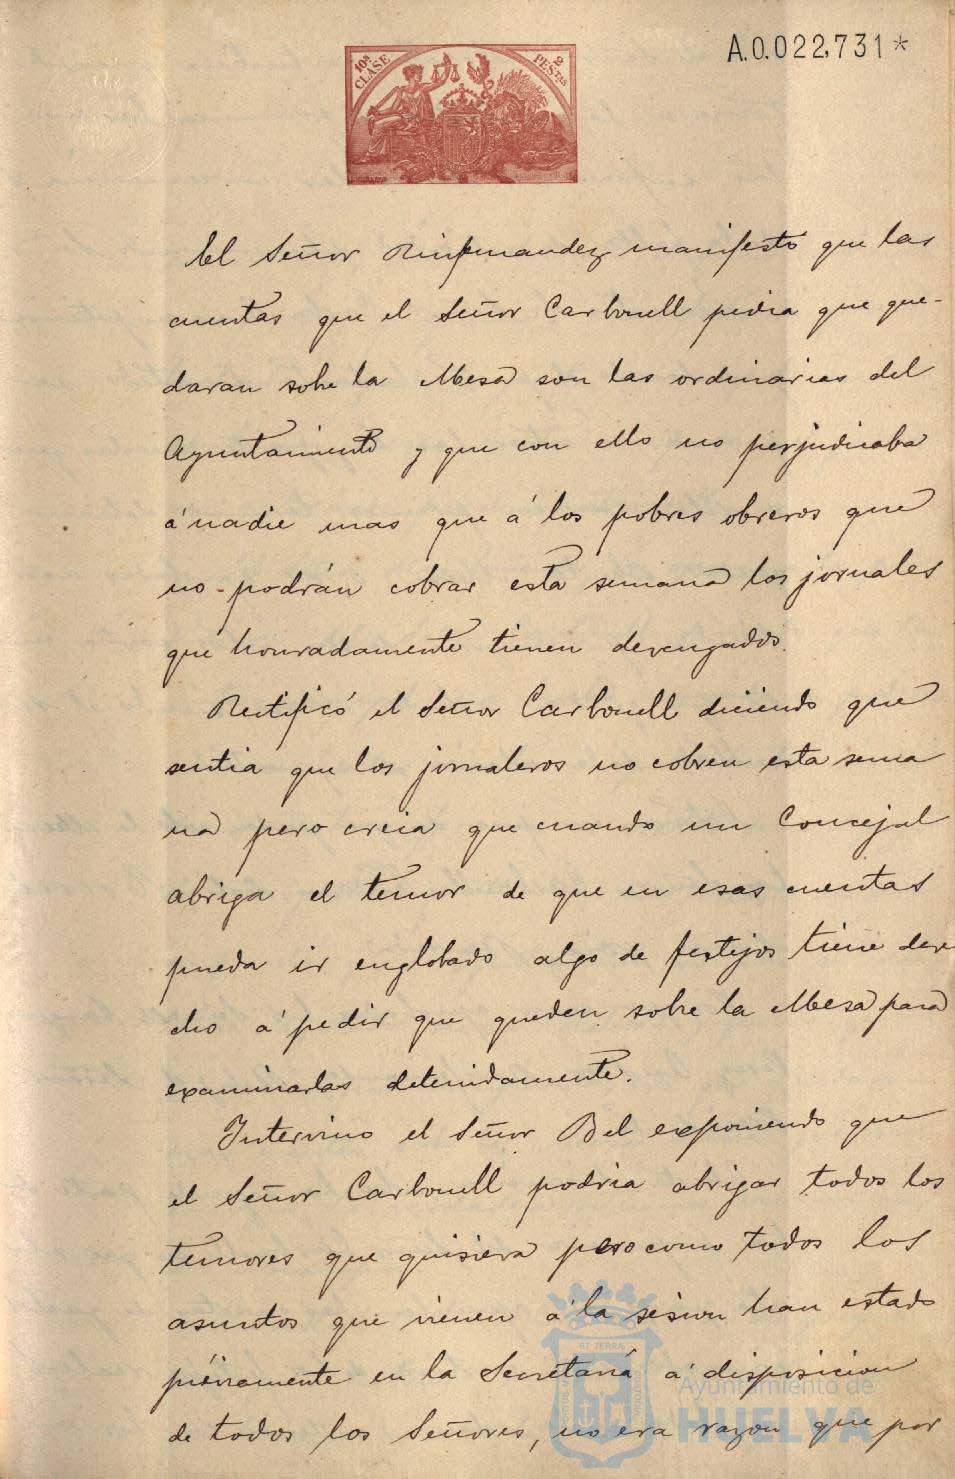 A.0.022,731*
10ª CLASE
2 PESTAS
El Señor Rinfernandez manifestó que las
cuentas que el Señor Carbonell pedia que que-
daran sobre la Mesa son las ordinarias del
Ayuntamiento y que con ello no perjudicaba
á nadie mas que á los pobres obreros que
no podrán cobrar esta semana los jornales
que honradamente tienen devengados.
Rectificó el Señor Carbonell diciendo que
sentia que los jornaleros no cobren esta sema
na pero creia que cuando un Concejal
abriga el temor de que en esas cuentas
pueda ir englobado algo de festijos tiene dere
cho á pedir que queden sobre la Mesa para
examinarlas detenidamente.
Intervino el Señor Bel exponiendo que
el Señor Carbonell podria abrigar todos los
temores que quisiera pero como todos los
asuntos que vienen á la sesion han estado
préviamente en la Secretaría á disposicion
de todos los Señores, no era razon que por
Ayuntamiento de
HUELVA